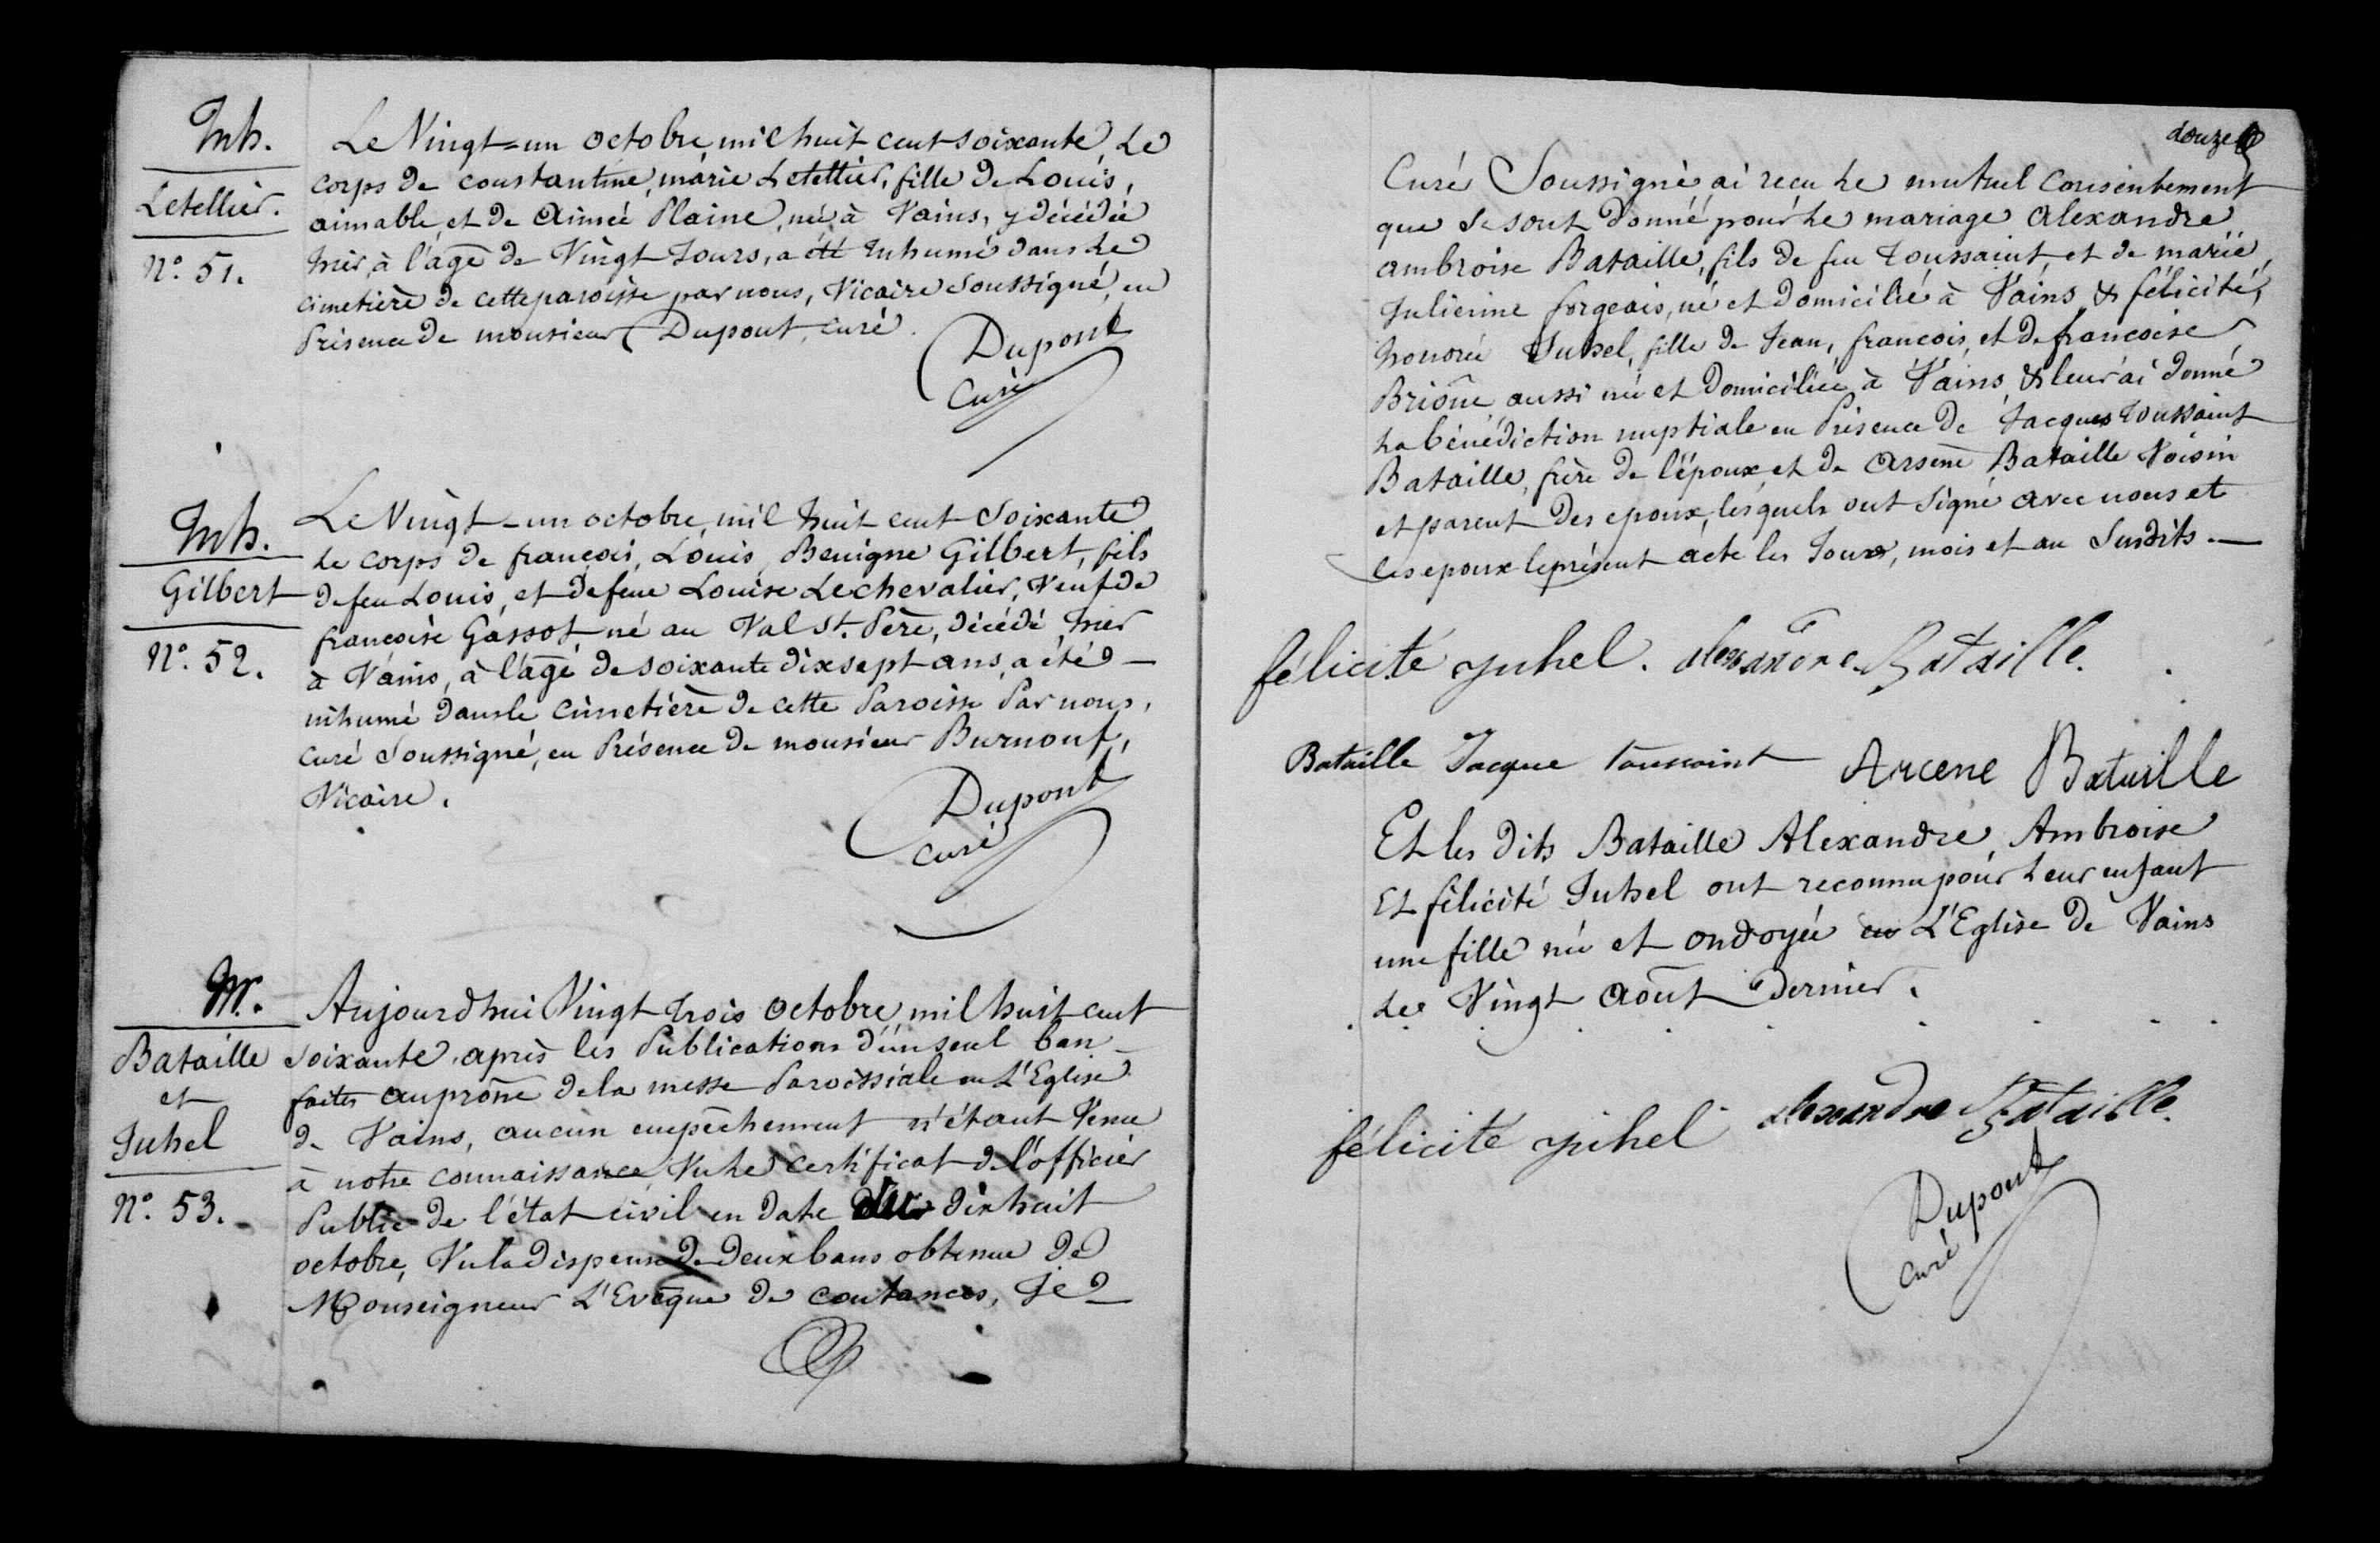 Inh.
Letellier.
N.º 51.
Le Vingt=un octobre, mil huit cent soixante, Le
corps de constantine, marie Letellier, fille de Louis,
aimable, et de Aimée Plaine, née à Vains, y décédée
hier, à l'age de Vingt Jours, a été Inhumé dans Le
cimetière de cette paroisse par nous, Vicaire Soussigné, en
Présence de monsieur Dupont, curé.
Dupont
Curé
Inh.
Gilbert
N.º 52.
Le Vingt-un octobre, mil huit cent Soixante
Le corps de françois, Louis, Benigne Gilbert, fils
de feu Louis, et de feue Louise Lechevalier, Veuf de
françoise Gassot né au Val St. Père, décédé hier
à Vains, à l'age de soixante dix sept ans, a été
inhumé dans le cimetière de cette Paroisse Par nous,
curé Soussigné, en Présence de monsieur Burnouf,
Vicaire.
Dupont
curé
M.
Bataille
et
Juhel
N.º 53.
Aujourd'hui Vingt trois octobre mil huit cent
soixante, après les Publications d'un seul ban
faites au prône de la messe Paroissiale en L'Eglise
de Vains, aucun empêchement n'étant Venu
à notre connaissance, Vu Le certificat de l'officier
Public de l'état civil en date du dix huit
octobre, Vu la dispense de deux bans obtenue de
Monseigneur L'Evêque de coutances, Je
douze
Curé Soussigné, ai reçu Le mutuel consentement
que se sont donné pour Le mariage Alexandre
ambroise Bataille, fils de feu toussaint, et de marie,
Julienne forgeais, né et domicilié à Vains, & félicité,
honorée Juhel, fille de Jean, francois, et de francoise
Briône aussi née et Domiciliée à Vains, & leur ai donné
La bénédiction nuptiale en Présence de Jacques toussaint
Bataille, frère de l'époux, et de Arsene Bataille Voisin
et parent des epoux, lesquels ont signé avec nous et
les epoux le présent acte les Jour, mois et an Susdits.
félicité juhel. alexandre Bataille.
Bataille Jacque toussaint Arcene Bataille
Et les dits Bataille Alexandre, Ambroise
Et félicité Juhel ont reconnu pour Leur enfant
une fille née et ondoyée en L'Eglise de Vains
Le Vingt Août Dernier.
félicité juhel alexandre Bataille.
Dupont
curé